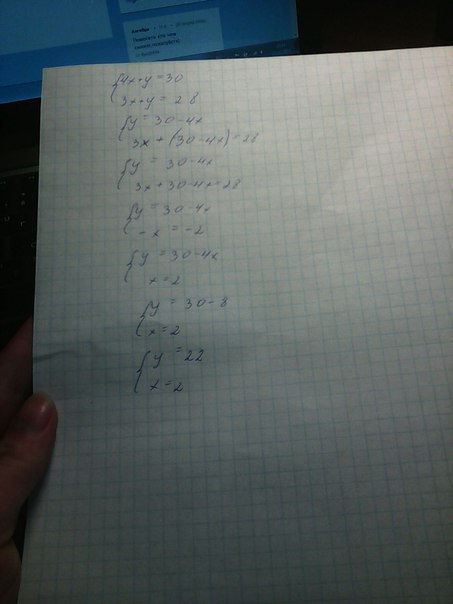 {4x+y=30
3x+y=28
{y=30-4x
3x+(30-4x)=28
{y=30-4x
3x+30-4x=28
{y=30-4x
-x=-2
{y=30-4x
x=2
{y=30-8
x=2
{y=22
x=2